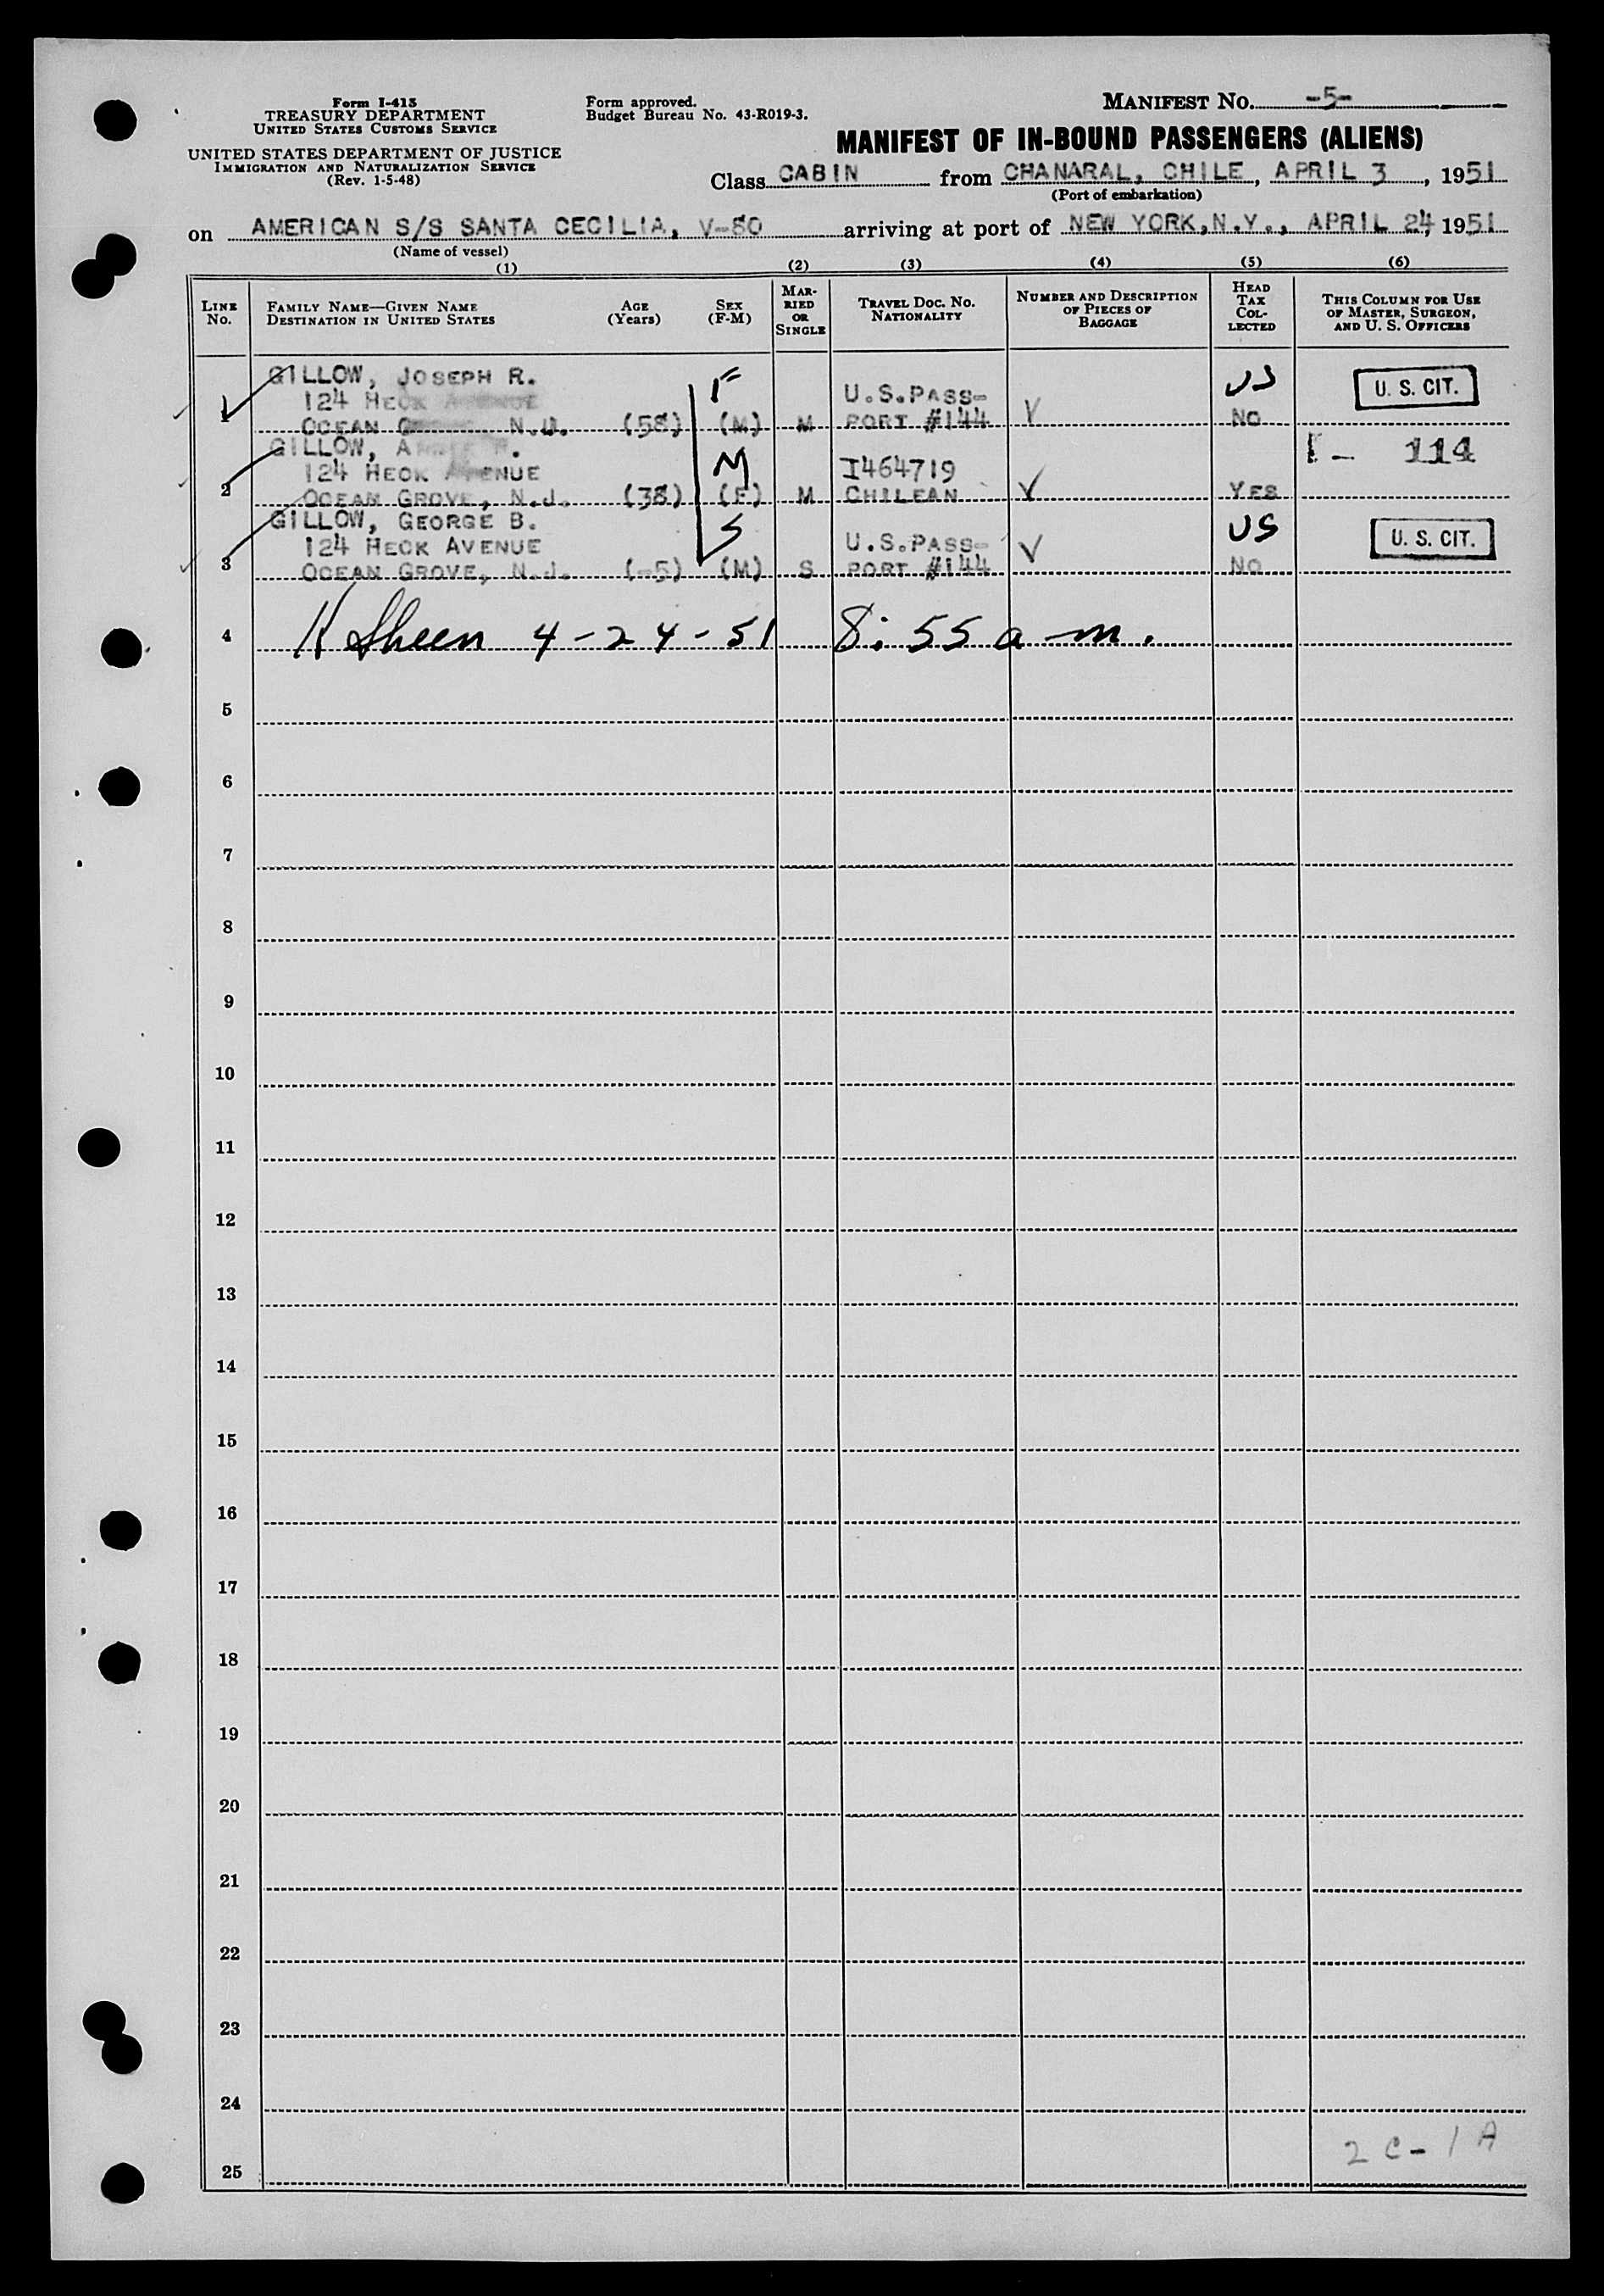 Form I-415
TREASURY DEPARTMENT
UNITED STATES CUSTOMS SERVICE
UNITED STATES DEPARTMENT OF JUSTICE
IMMIGRATION AND NATURALIZATION SERVICE
(Rev. 1-5-48)
Form approved.
Budget Bureau No. 43-R019-3.
MANIFEST No. -5-
MANIFEST OF IN-BOUND PASSENGERS (ALIENS)
Class CABIN from CHANARAL, CHILE, APRIL 3, 1951
(Port of embarkation)
on AMERICAN S/S SANTA CECILIA, V-80 arriving at port of NEW YORK, N.Y., APRIL 24, 1951
(Name of vessel)
(1) (2) (3) (4) (5) (6)
LINE No. FAMILY NAME—GIVEN NAME DESTINATION IN UNITED STATES AGE (Years) SEX (F-M) MARRIED OR SINGLE TRAVEL DOC. NO. NATIONALITY NUMBER AND DESCRIPTION OF PIECES OF BAGGAGE HEAD TAX COLLECTED THIS COLUMN FOR USE OF MASTER, SURGEON, AND U. S. OFFICERS
GILLOW, JOSEPH R. F US U. S. CIT.
124 HECK AVENUE U.S.PASS-
1 OCEAN N.J. (58) (M) M PORT #144 V NO
GILLOW, M 114
124 HECK AVENUE I464719
2 OCEAN GROVE, N.J. (38) (F) M CHILEAN V YES
GILLOW, GEORGE B. S US U. S. CIT.
124 HECK AVENUE U.S.PASS-
3 OCEAN GROVE, N.J. (-5) (M) S PORT #144 V NO
4 H Sheen 4-24-51 8:55 a m.
5
6
7
8
9
10
11
12
13
14
15
16
17
18
19
20
21
22
23
24
2 C - 1 A
25